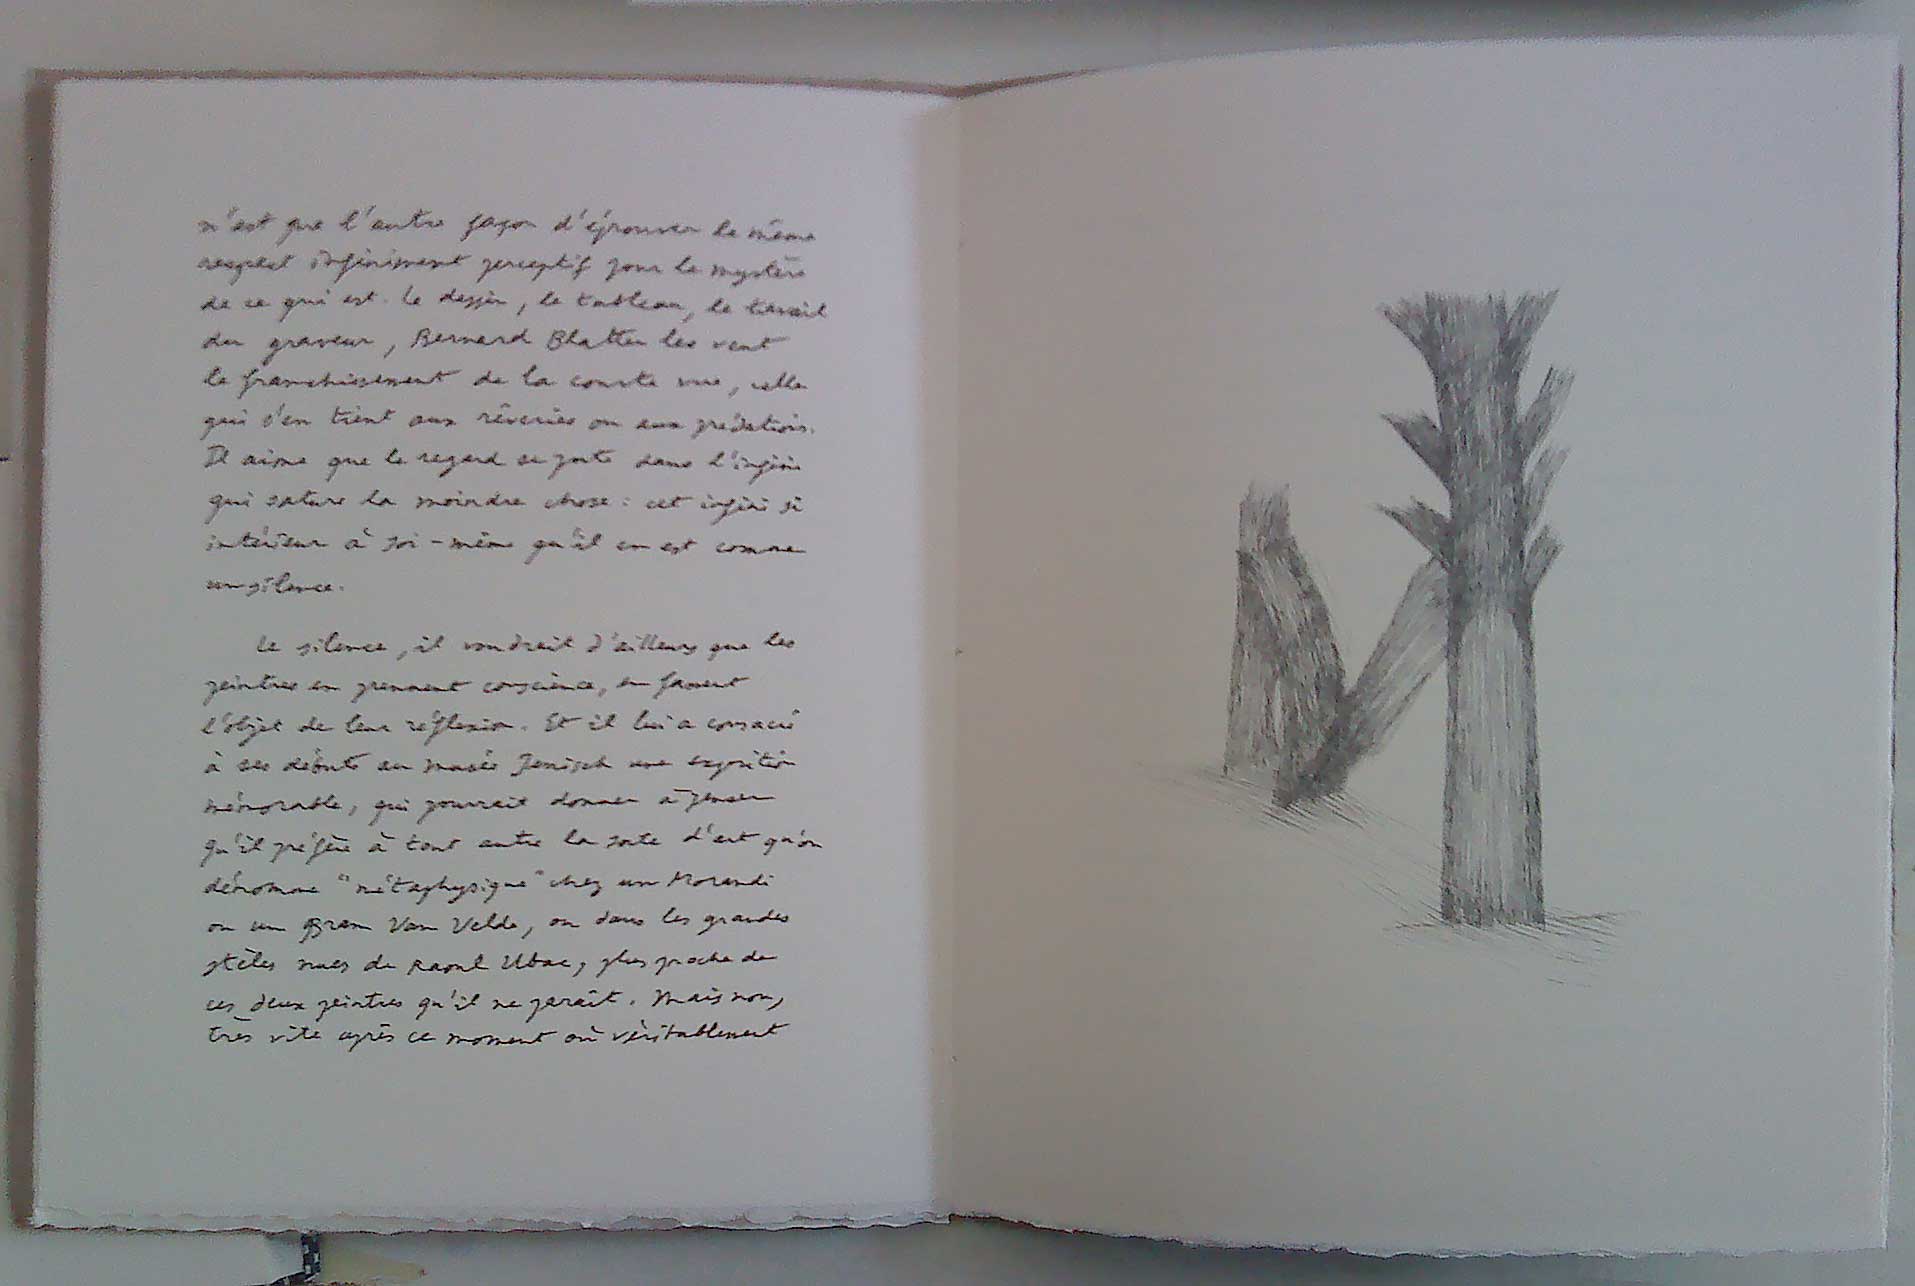 n'est que l'autre façon d'éprouver le même
respect infiniment perceptif pour le mystère
de ce qui est. Le dessin, le tableau, le travail
du graveur, Bernard Blatter les veut
le franchissement de la courte vue, celle
qui s'en tient aux rêveries ou aux prédations.
Il aime que le regard se porte dans l'infini
qui sature la moindre chose : cet infini si
intérieur à soi-même qu'il en est comme
un silence.
Le silence, il voudrait d'ailleurs que les
peintres en prennent conscience, en fassent
l'objet de leur réflexion. Et il lui a consacré
à ses débuts au musée Jenisch une exposition
mémorable, qui pourrait donner à penser
qu'il préfère à tout autre la sorte d'art qu'on
dénomme "métaphysique" chez un Morandi
ou un Bram Van Velde, ou dans les grandes
stèles nues de Raoul Ubac, plus proche de
ces deux peintres qu'il ne paraît. Mais non,
très vite après ce moment où véritablement